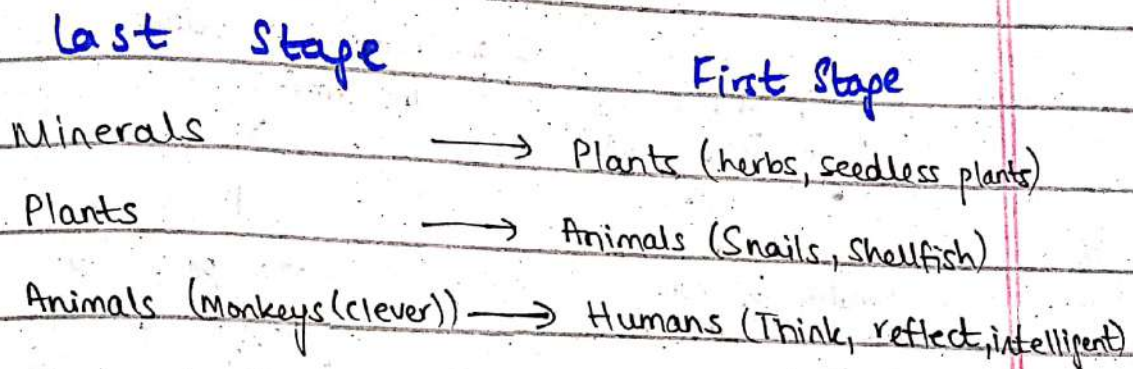 Last Stage First Stage
Minerals → Plants (herbs, seedless plants)
Plants → Animals (Snails, Shellfish)
Animals (Monkeys (clever)) → Humans (Think, reflect, intelligent)